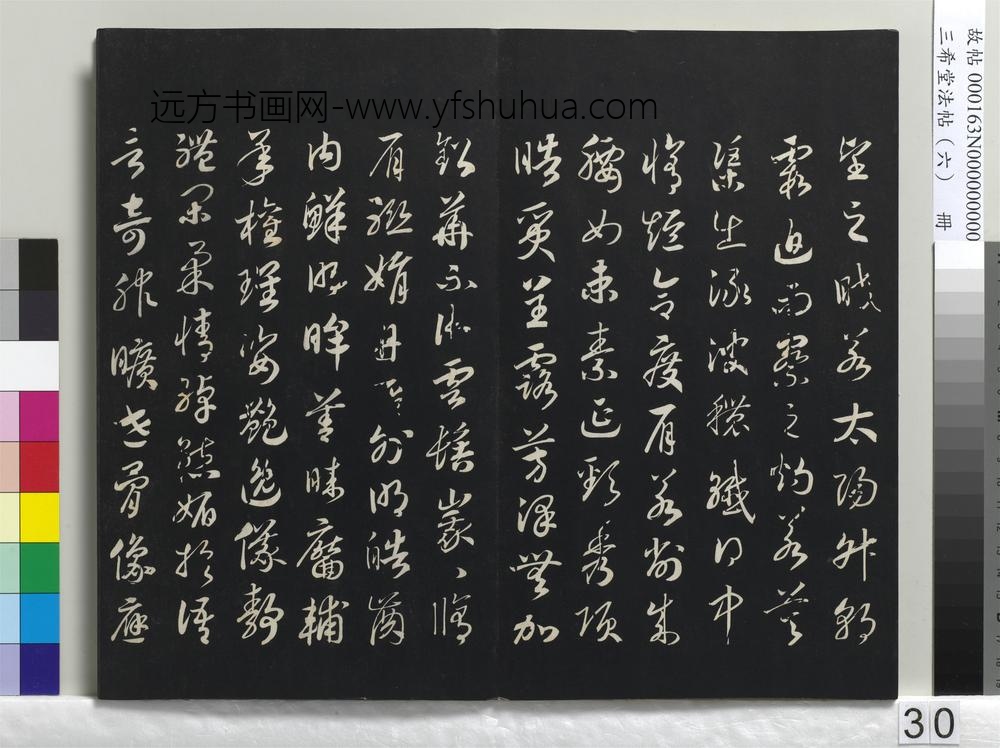 远方书画网-www.yfshuhua.com
望之皎若太陽升朝
霞迫而察之灼若芙
蕖出淥波穠纖得中
脩短合度肩若削成
腰如束素延頸秀項
皓質呈露芳澤無加
鉛華不御雲髻峩、脩
眉聯娟丹脣外朗皓齒
內鮮明眸善睞靨輔
承權瓌姿艷逸儀靜
體閑柔情綽態媚於語
言奇服曠世骨像應
故帖 000163N000000000
三希堂法帖（六） 冊
30